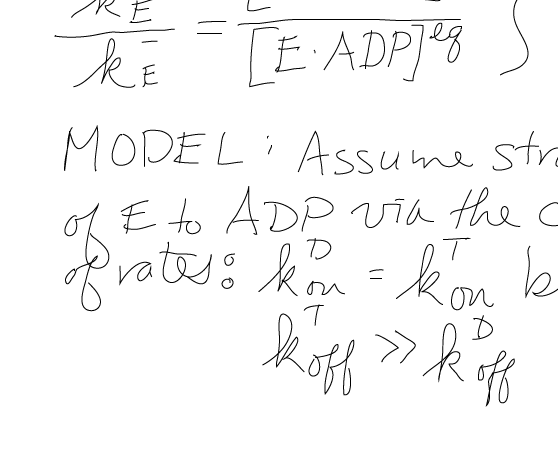 k_E / k_E^- = [ / [E·ADP]^eq
MODEL: Assume
of E to ADP via the
of rates: k_on^D = k_on^T
k_off^T >> k_off^D